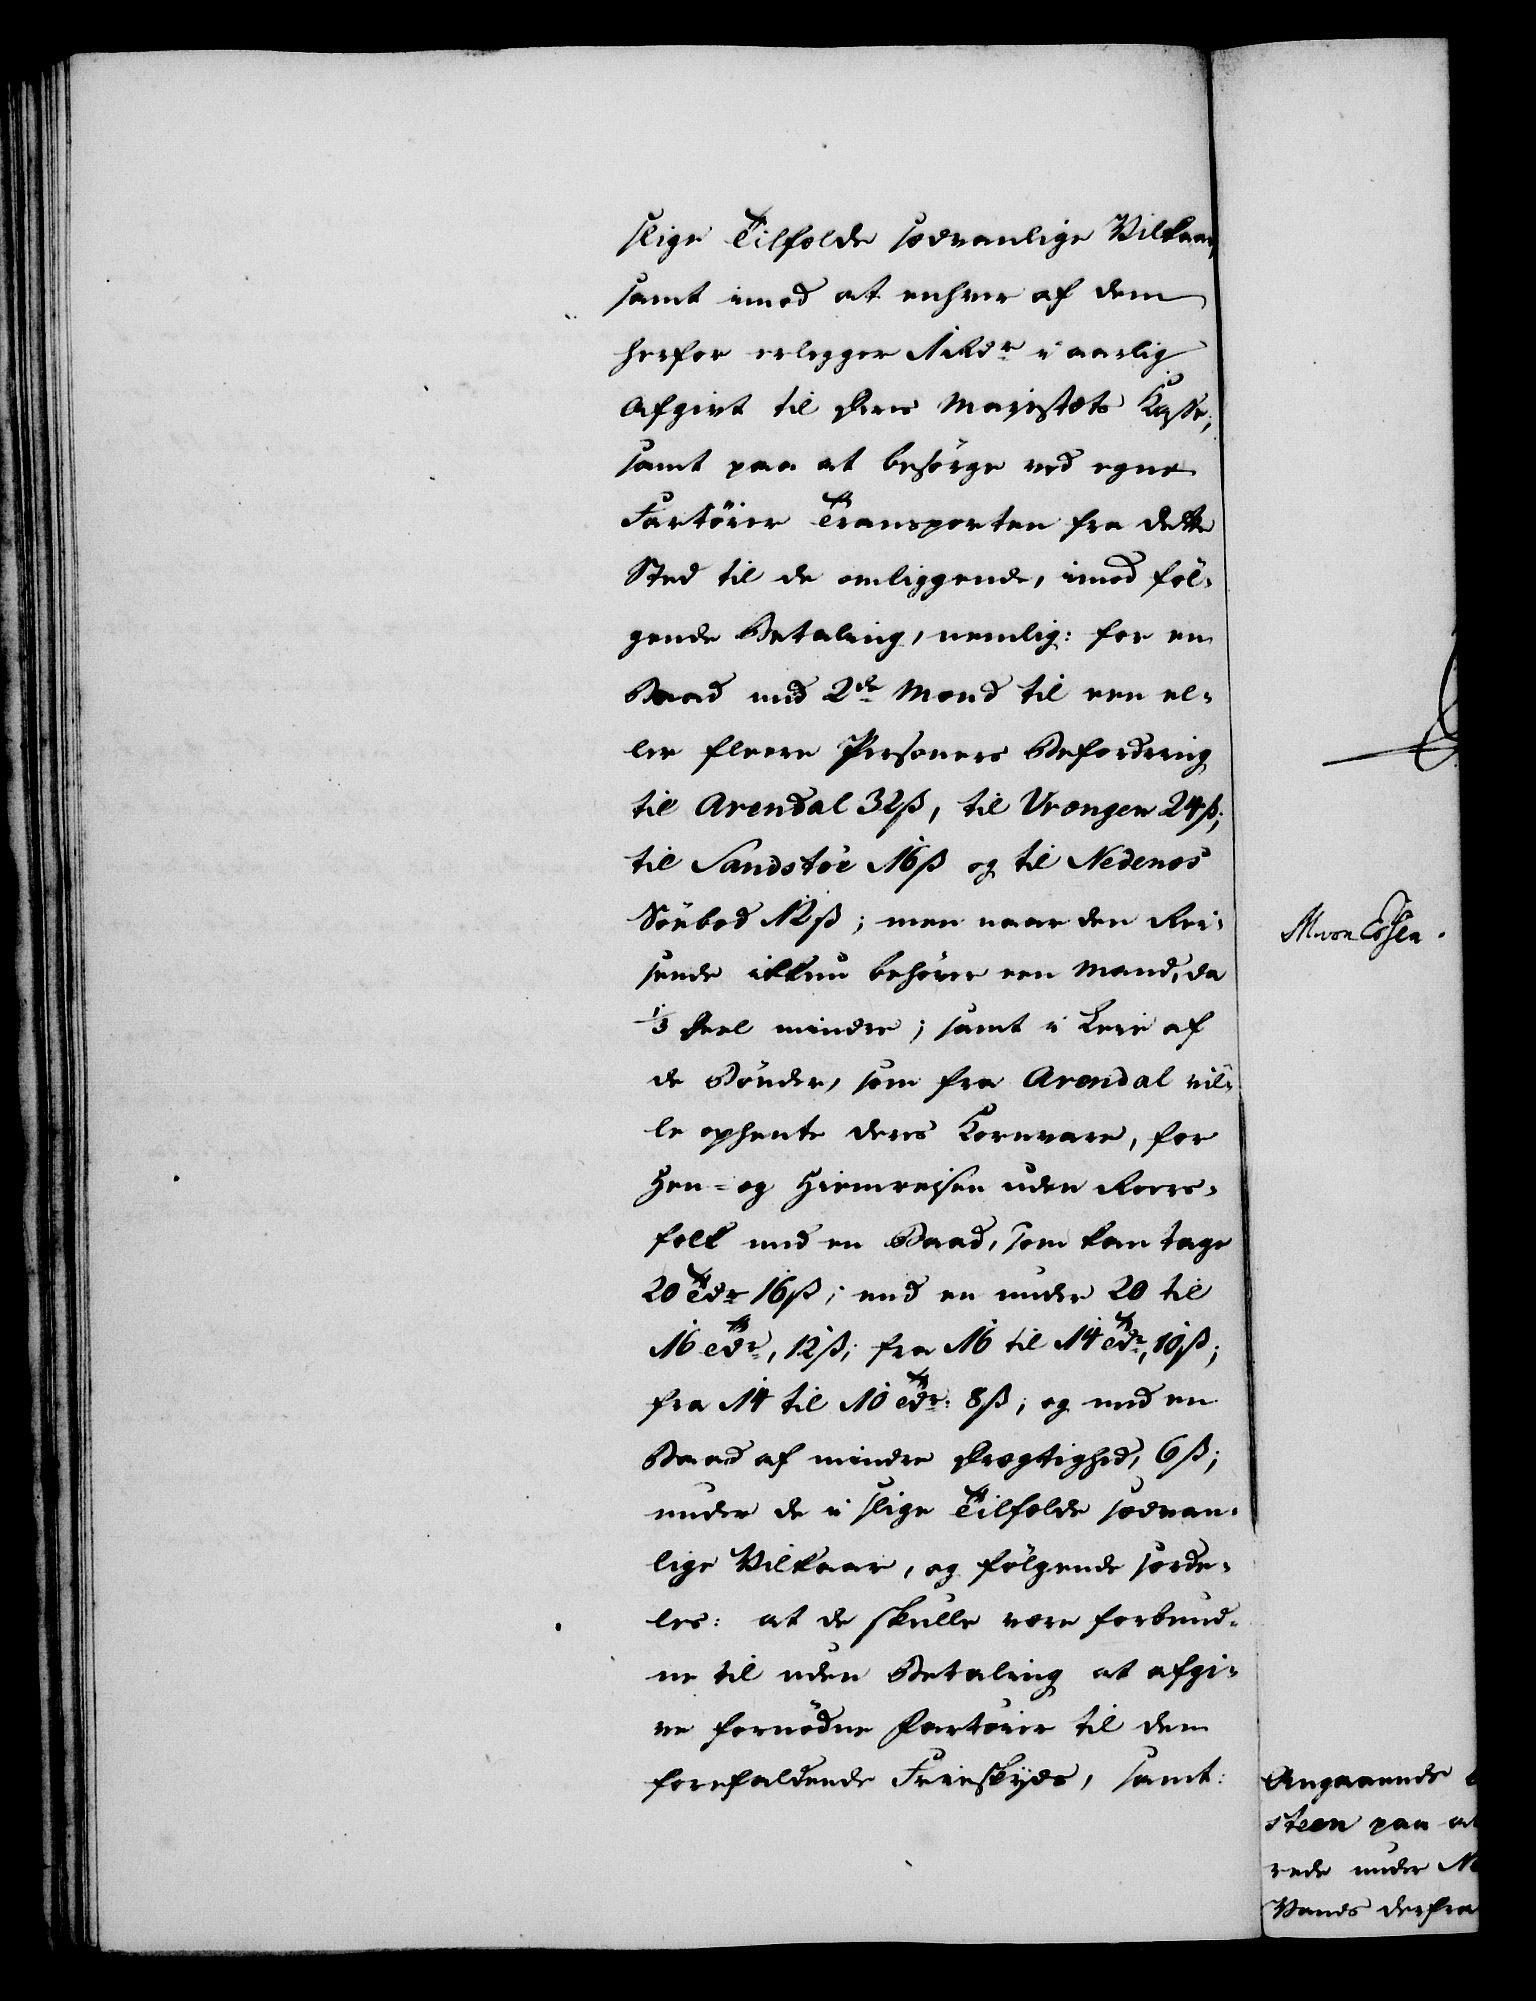 slige Tilfælde sædvanlige Vilkaar,
samt imod at enhver af dem
herfor erlegger 1 Rdr i aarlig
Afgivt til Deres Majestæts Kasse,
samt paa at besörge ved egne
Fartöier Transporten fra dette
Sted til de omliggende, imod föl-
gende Betaling, nemlig: for en
Baad med 2de Mænd til een el-
ler fleere Persones Befordring
til Arendal 32 ß, til Vrængen 24 ß;
til Sandstöe 16 ß og til Nedenæs
Söebod 12 ß; men naar den Rei-
sende ikkun behöver een Mand, da
1/3 Deel mindre; samt i Leie af
de Bönder, som fra Arendal vil-
le ophente deres Kornvare, for
Hen- og Hiemreisen uden Roers-
folk med en Baad, som kan tage
20 Tdr 16 ß; med en under 20 til
16 Tdr, 12 ß; fra 16 til 14 Tdr, 10 ß;
fra 14 til 10 Tdr: 8 ß; og med en
Baad af mindre Drægtighed, 6 ß;
under de i slige Tilfælde sædvan-
lige Vilkaar, og fölgende særde-
les: at de skulle være forbund-
ne til uden Betaling at afgi-
ve fornödne Fartöier til den
forefaldende Frieskyds, samt:
M von Essen.
Angaaende
steen paa at
rede under
Vands derfra